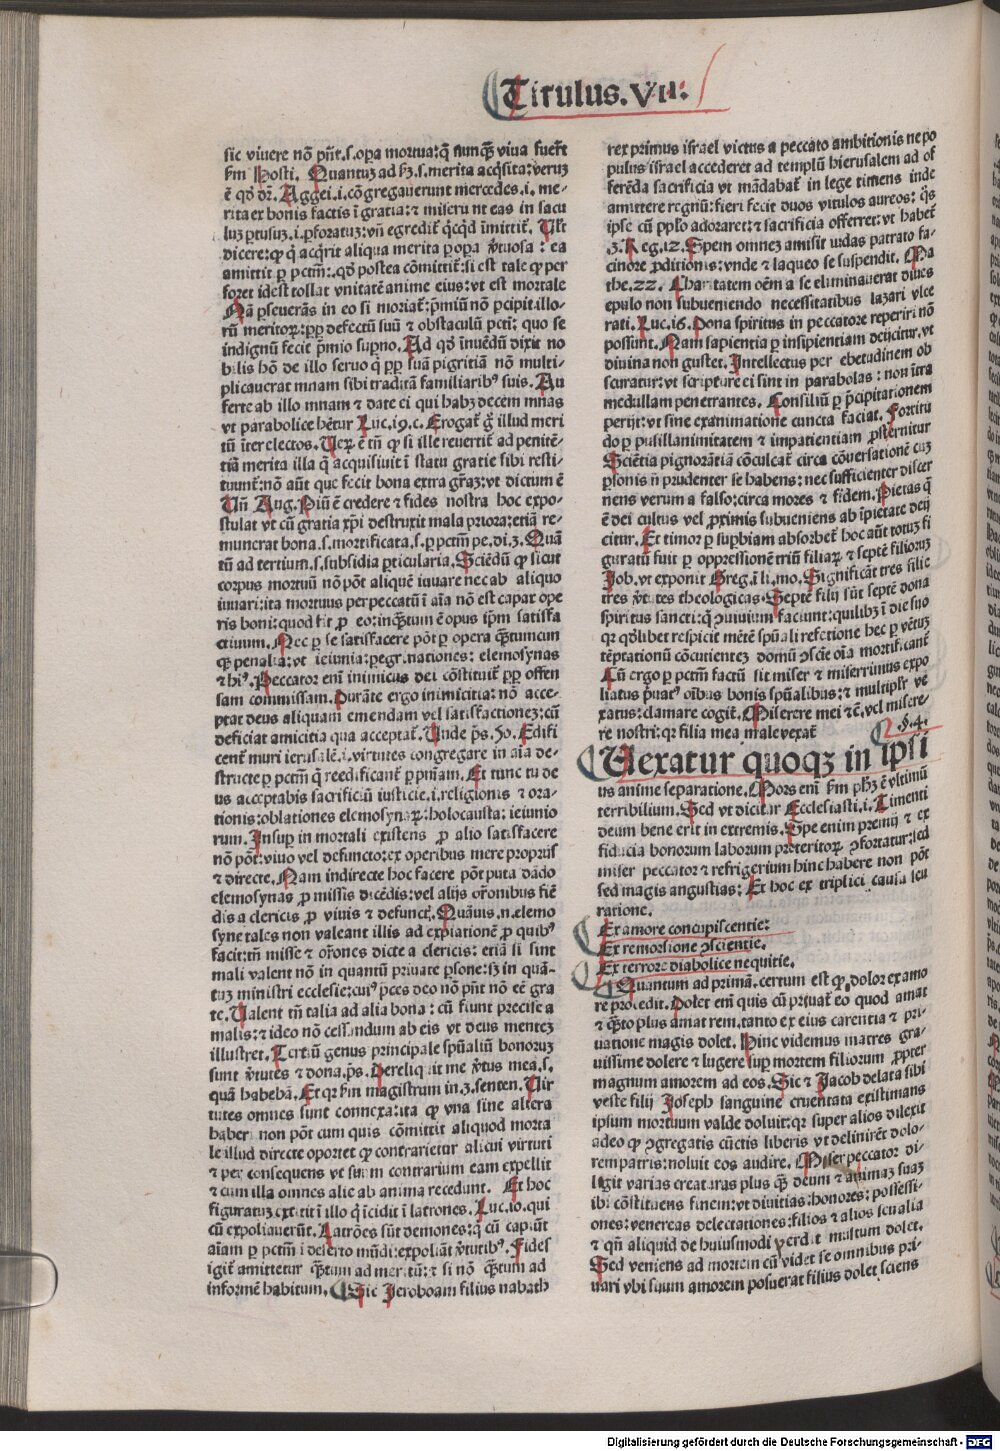 Titulus.VII:
sic viuere nō pn̄t.s.oꝑa mortua:q̄ nunqꝫ viua fuer̄t
ẜm Hosti. Quantuꝫ ad ẜ3.s.merita acq̄sita:veruꝫ
ē qd̄ dr̄. Aggei.i.cōgregauerunt mercedes.i. me-
rita ex bonis factis ī gratia:⁊ miserunt eas in sacu
luꝫ ꝑtusuꝫ.i.ꝑforatuꝫ:vn̄ egredit̄ qͥcqͥd īmittit̄. Vl̄t
dicere:ꝙ q̇ acq̄rit aliqua merita ꝑ oꝑa ṽtuosa : ea
amittit ꝑ pctm̄.qd̄ postea cōmittit̄:si est tale ꝙ per
foret idest tollat vnitatē anime eius:vt est mortale
Nā ꝑseuerās in eo si moriat̄:p̄miū nō ꝑcipit illo-
rū meritoꝝ:ꝓꝑ defectū suū ⁊ obstaculū pcti: quo se
indignū fecit p̄mio suꝑno. Ad qd̄ inuēdū dixit no
bilis hō de illo seruo q̇ ꝓꝑ suā pigritiā nō multi-
plicauerat mnam sibi traditā familiaribꝰ suis. Au
ferte ab illo mnam ⁊ date ei qui habꝫ decem mnas
vt parabolice hr̄tur Luc.19.c. Erogat̄ g̊ illud meri
tū īter electos. Veꝝ ē tn̄ ꝙ si ille reuertit̄ ad penitē-
tiā merita illa q̄ acquisiuit ī statu gratie sibi resti-
tuunt̄:nō aūt que fecit bona extra gr̄aꝫ:vt dictum ē
Vn̄ Aug. Piū ē credere ⁊ fides nostra hoc expo-
stulat vt cū gratia xp̄i destruxit mala priora:etiā re-
munerat bona.s.mortificata.s.ꝑ pctm̄ pe.di.3. Quā
tū ad tertium.s.subsidia ꝑticularia. Sciēdū ꝙ sicut
corpus mortuū nō pōt aliquē iuuare nec ab aliquo
iuuari:ita mortuus per peccatū ī aīa nō est capax ope
ris boni:quod fit ꝓ eo:inqͣꝫtum ē opus ip̄m satisfa
ctiuum. Nec ꝑ se satisfacere pōt ꝑ opera qͣꝫtumcun
qꝫ penalia:vt ieiunia:peregrinationes: elemosynas
⁊ hiꝰ. Peccator enī inimicus dei cōstituit̄ ꝓꝑ offen
sam commissam. Durāte ergo inimicitia: nō acce-
ptat deus aliquam emendam vel satisfactioneꝫ:cū
deficiat amicitia qua acceptat̄. Vnde ps̄.50. Edifi
cent̄ muri ierusalē.i.virtutes congregate in aīa de-
structe ꝑ pctm̄ q̄ reedificant̄ ꝑ pn̄iam. Et tunc tu de
us acceptabis sacrificiū iusticie.i.religionis ⁊ ora-
tionis:oblationes elemosynaꝝ:holocausta: ieiunio
rum. Insuꝑ in mortali existens ꝓ alio satisfacere
nō pōt:viuo vel defuncto:ex operibus mere proprijs
⁊ directe. Nam indirecte hoc facere pōt puta dādo
elemosynas ꝓ missis dicēdis:vel alijs or̄onibus fiē
dis a clericis ꝓ viuis ⁊ defunct̄. Quāuis.n.elemo
syne tales non valeant illis ad expiationē ꝓ quibꝰ
facit:tn̄ misse ⁊ or̄ones dicte a clericis: etiā si sint
mali valent nō in quantū priuate ꝑsone:sꝫ in quā-
tuꝫ ministri ecclesie:cuiꝰ p̄ces deo nō pn̄t nō eē gra
te. Valent tn̄ talia ad alia bona : cū fiunt precise a
malis:⁊ ideo nō cessandum ab eis vt deus menteꝫ
illustret. Tertiū genus principale spūaliū bonoruꝫ
sunt ṽtutes ⁊ dona.ps̄. Dereliquit me ṽtus mea.s.
quā habebā. Et qꝛ ẜm magistrum in.3.senten. Vir
tutes omnes sunt connexa:ita ꝙ vna sine altera
haberi non pōt cum quis cōmittit aliquod morta
le illud directe oportet ꝙ contrarietur alicui virtuti
⁊ per consequens vt suum contrarium eam expellit
⁊ cum illa omnes alie ab anima recedunt. Et hoc
figuratuꝫ extitit ī illo q̇ īcidit ī latrones. Luc.10.qui
cū expoliauerūt. Latrōes sūt demones:q̇ cū capiūt
aīam ꝑ pctm̄ ī deserto mūdi:expoliāt ṽtutibꝰ. Fides
igit̄ amittetur qͣꝫtum ad meritū:⁊ si nō qͣꝫtum ad
informē habitum. Sic Jeroboam filius nabath
rex primus israel victus a peccato ambitionis ne po
pulus israel accederet ad templū hierusalem ad of
ferēda sacrificia vt mādabat̄ in lege timens inde
amittere regnū:fieri fecit duos vitulos aureos: q̄s
ipse cū pplo adoraret:⁊ sacrificia offerret:vt habet̄
3.Reg.12. Spem omneꝫ amisit iudas patrato fa-
cinore ꝓditionis:vnde ⁊ laqueo se suspendit. Ma
the.22. Charitatem oēm a se eliminauerat diues
epulo non subueniendo necessitatibus lazari vlce
rati. Luc.16. Dona spiritus in peccatore reperiri nō
possunt. Nam sapientia ꝑ insipientiam deijcitur.vt
diuina non gustet. Intellectus per ebetudinem ob
scuratur:vt scripture ei sint in parabolas : non ītra
medullam penetrantes. Consiliū ꝑ p̄cipitationem
perijt:vt sine examinatione cuncta faciat. Fortitu
do ꝑ pusillanimitatem ⁊ impatientiam ꝓsternitur
Sciētia ꝑ ignorātiā cōculcat̄ circa cōuersationē cuꝫ
ꝑsonis n̄ prudenter se habens: nec sufficienter discer
nens verum a falso:circa mores ⁊ fidem. Pietas q̄
ē dei cultus vel ꝓximis subueniens ab īpietate deij
citur. Et timor ꝑ suꝑbiam absorbet̄ hoc aūt totuꝫ fi
guratū fuit ꝑ oppressionē triū filiaꝝ ⁊ septē filioruꝫ
Job.vt exponit Greg.ī li.mo. Significāt tres filie
tres ṽtutes theologicas. Septē filij sūt septē dona
spiritus sancti:q̇ ꝯuiuium faciunt:quilibꝫ ī die suo
qꝛ qd̄libet respicit mētē spūali refetione hec ꝑ vētuꝫ
tēptationū cōcutienteꝫ domū ꝯscīe oīa mortificant̄
Cū ergo ꝑ pctm̄ factū sit miser ⁊ miserrimus expo
liatus p̄uatꝰ oībus bonis spūalibus:⁊ multiplr̄ ve
xatus:clamare cogit̄. Miserere mei ⁊c̄.vel misere-
re nostri:qꝛ filia mea male vexat̄ .§.4.
Vexatur quoqꝫ in ipsi
us anime separatione. Mors enī ẜm ph̄ꝫ ē vltimū
terribilium. Sed vt dicitur Ecclesiasti.i. Timenti
deum bene erit in extremis. Spe enim premij ⁊ ex
fiducia bonorum laborum preteritoꝝ ꝯfortatur:sed
miser peccator ⁊ refrigerium hinc habere non pōt
sed magis angustias: Et hoc ex triplici causa seu
ratione.
Ex amore concupiscentie:
Ex remorsione ꝯscientie.
Ex terrore diabolice nequitie.
Quantum ad primā.certum est ꝙ dolor ex amo
re procedit. Dolet enī quis cū priuat̄ eo quod amat
⁊ qͣꝫto plus amat rem.tanto ex eius carentia ⁊ pri-
uatione magis dolet. Hinc videmus matres gra-
uissime dolere ⁊ lugere suꝑ mortem filiorum ꝓpter
magnum amorem ad eos. Sic ⁊ Jacob delata sibi
veste filij Joseph sanguine cruentata existimans
ipsum mortuum valde doluit:qꝛ super alios dilexit
adeo ꝙ ꝯgregatis cūctis liberis vt delinirēt dolo-
rem patris:noluit eos audire. Miser peccator di-
ligit varias creaturas plus qͣꝫ deum ⁊ animaꝫ suaꝫ
ibi cōstituens finem:vt diuitias:honores: possessi-
ones:venereas delectationes:filios ⁊ alios seu alia
⁊ qn̄ aliquid de huiusmodi perdit multum dolet.
Sed veniens ad mortem cū videt se omnibus pri-
uari vbi suum amorem posuerat filius dolet sciens
Digitalisierung gefördert durch die Deutsche Forschungsgemeinschaft - DFG